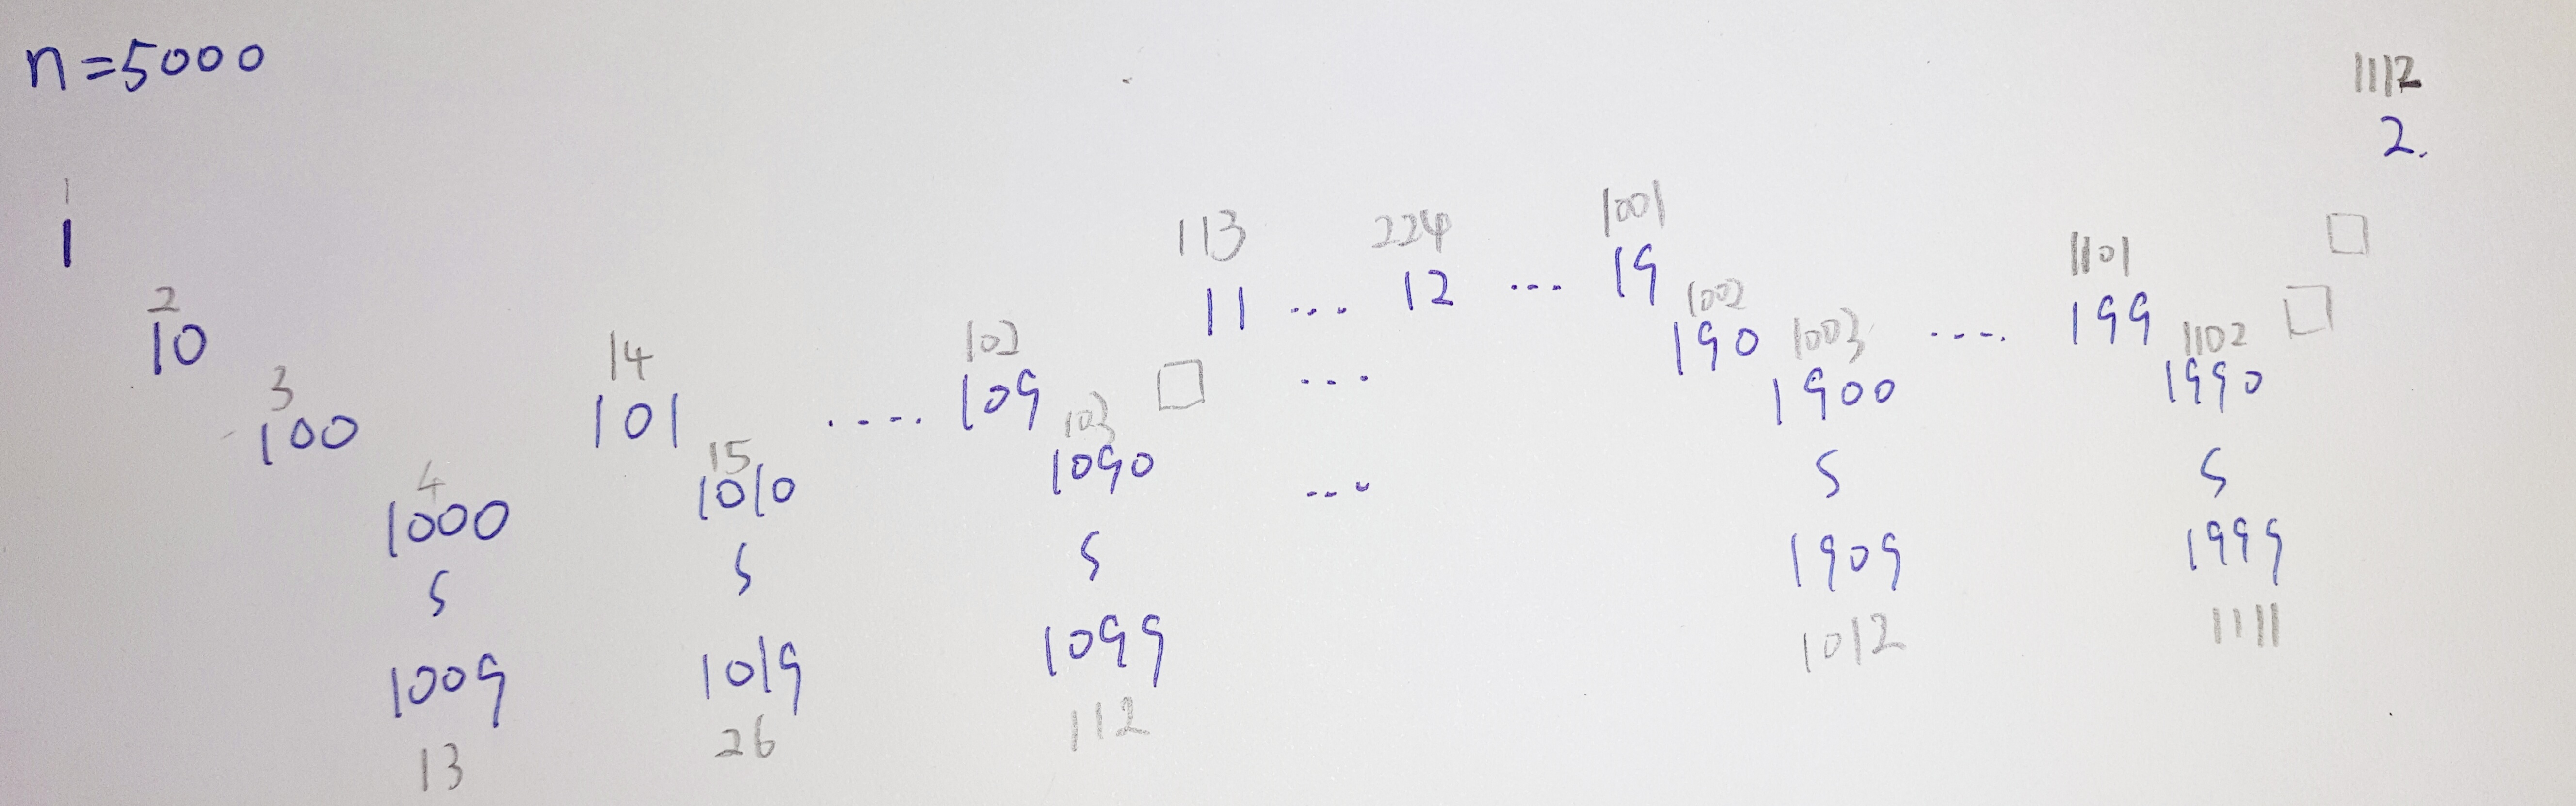 n=5000
1112
2.
1
1
2
10
3
100
4
1000
S
1009
13
14
101
15
1010
S
1019
26
....
102
109
103
1090
S
1099
112
113
11 ... 224
12 ... 1001
19
...
...
1002
190
1003
1900
S
1909
1012
....
1101
199
1102
1990
S
1999
1111